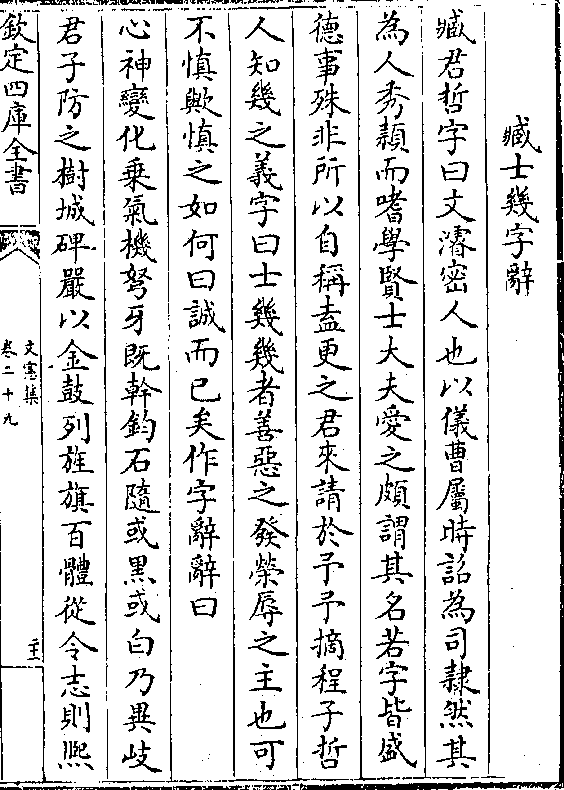 臧士幾字辭
臧君哲字曰文濬密人也以儀曹屬時詔為司隸然其
為人秀穎而嗜學賢士大夫愛之頗謂其名若字皆盛
德事殊非所以自稱盍更之君來請於予予摘程子哲
人知幾之義字曰士幾幾者善惡之發榮辱之主也可
不慎歟慎之如何曰誠而已矣作字辭辭曰
心神變化乗氣機弩牙既幹鈞石隨或黒或白乃異岐
君子防之樹城碑嚴以金鼓列旌旗百體從令志則熈
欽定四庫全書
文憲集
卷二十九